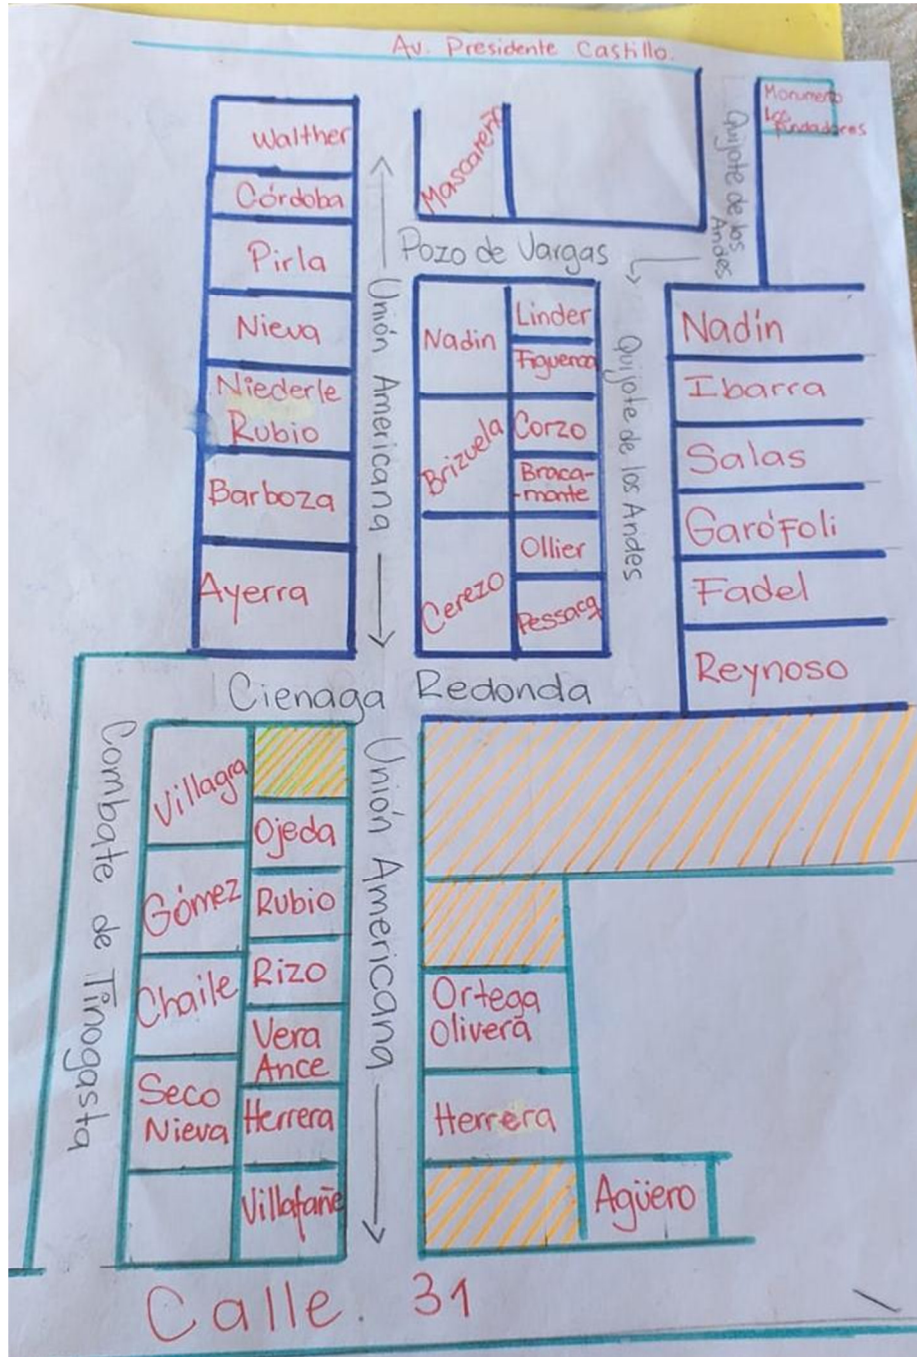 Av. Presidente Castillo.
Monumento
Los
Fundadores
Quijote de los
Andes
Mascareño
Walther
Córdoba
Pirla
Nieva
Niederle
Rubio
Barboza
Ayerra
Pozo de Vargas
Unión Americana
Nadin
Brizuela
Cerezo
Linder
Figueroa
Corzo
Braca-
-monte
Ollier
Pessacq
Quijote de los Andes
Nadín
Ibarra
Salas
Garófoli
Fadel
Reynoso
Cienaga Redonda
Combate de Tinogasta
Villagra
Gómez
Chaile
Seco
Nieva
Ojeda
Rubio
Rizo
Vera
Ance
Herrera
Villafañe
Unión Americana
Ortega
Olivera
Herrera
Agüero
Calle. 31